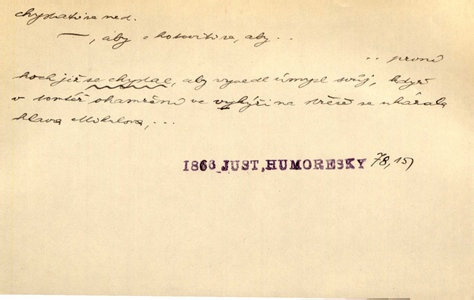 chystati se ned.
—, aby o hotoviti se, aby..
.. první
hoch již se chystal, aby vyvedl úmysl svůj, když
v tomtéž okamžení ve vykýři na střeše se ukázala
hlava Mikulova, ...
1866 JUST, HUMORESKY 78, 15)